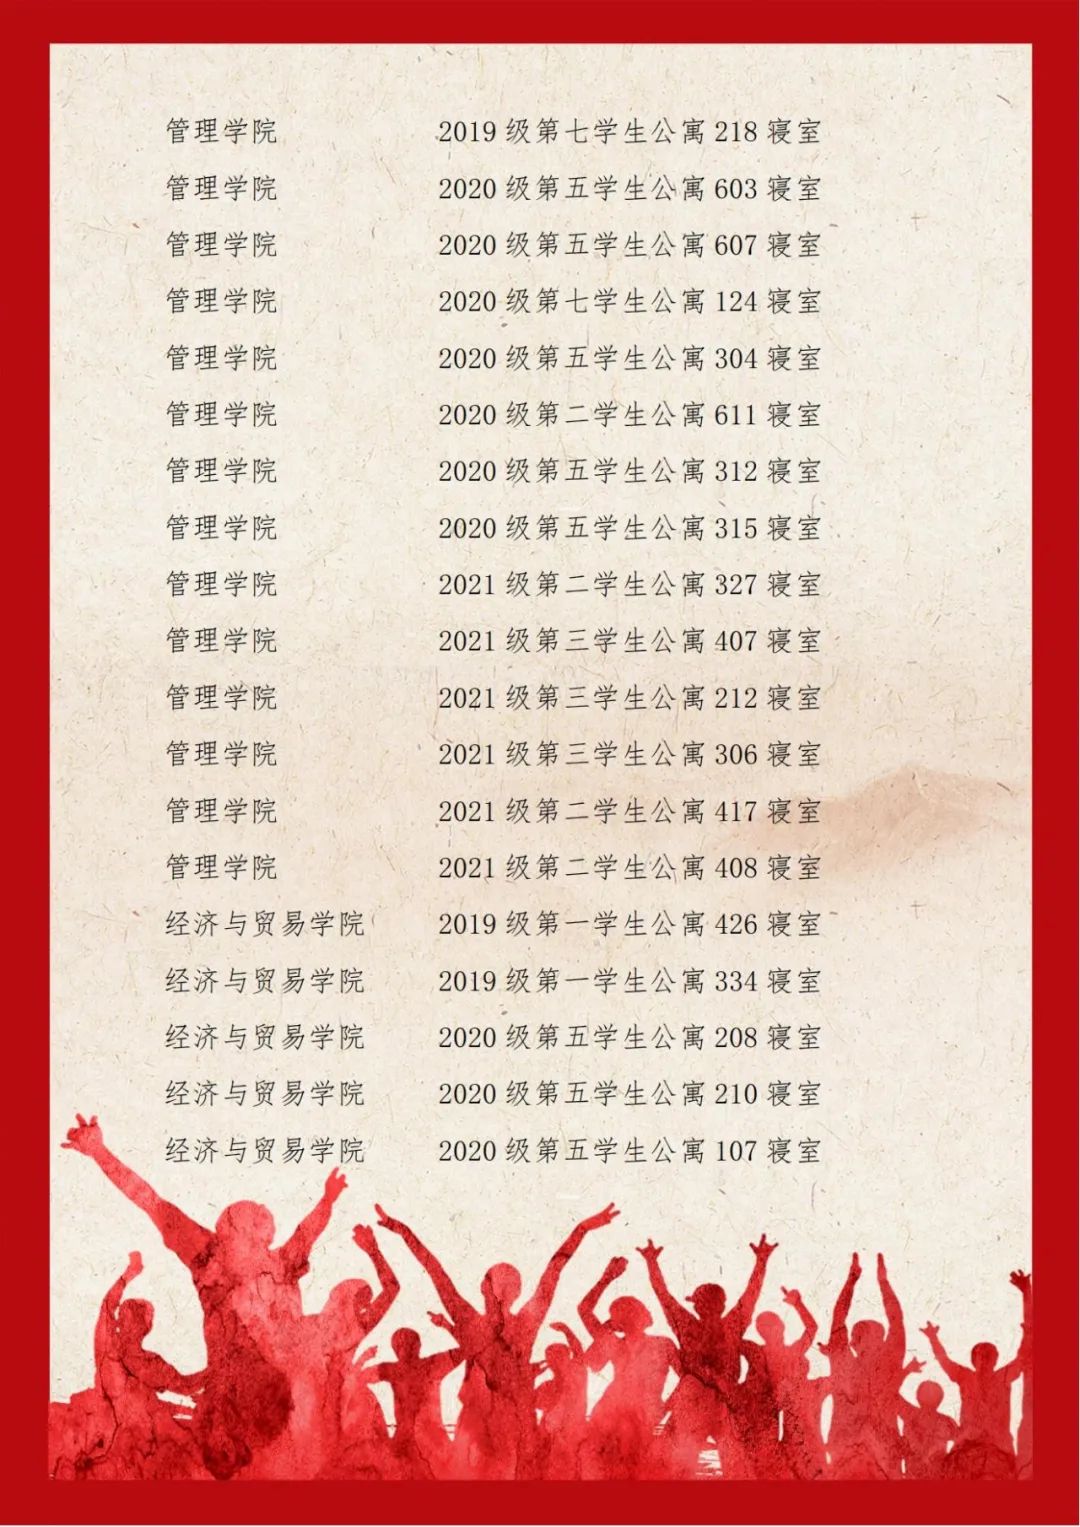 管理学院 2019级第七学生公寓218寝室
管理学院 2020级第五学生公寓603寝室
管理学院 2020级第五学生公寓607寝室
管理学院 2020级第七学生公寓124寝室
管理学院 2020级第五学生公寓304寝室
管理学院 2020级第二学生公寓611寝室
管理学院 2020级第五学生公寓312寝室
管理学院 2020级第五学生公寓315寝室
管理学院 2021级第二学生公寓327寝室
管理学院 2021级第三学生公寓407寝室
管理学院 2021级第三学生公寓212寝室
管理学院 2021级第三学生公寓306寝室
管理学院 2021级第二学生公寓417寝室
管理学院 2021级第二学生公寓408寝室
经济与贸易学院 2019级第一学生公寓426寝室
经济与贸易学院 2019级第一学生公寓334寝室
经济与贸易学院 2020级第五学生公寓208寝室
经济与贸易学院 2020级第五学生公寓210寝室
经济与贸易学院 2020级第五学生公寓107寝室